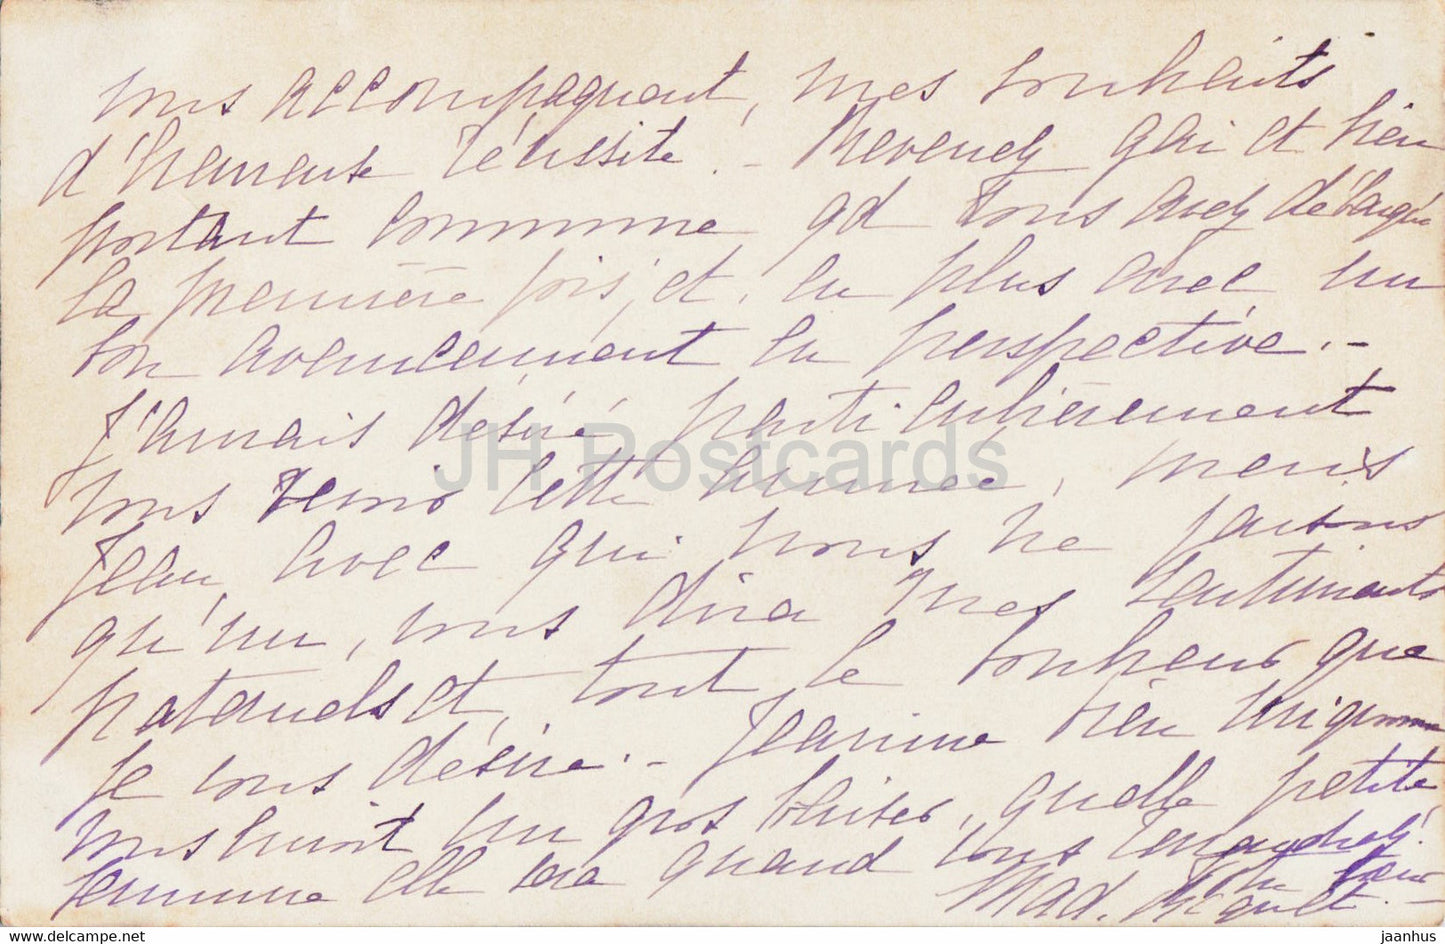 vous accompagnent, mes souhaits
d'heureuse réussite. - Revenez gai et bien
portant comme qd vous avez débarqué
la première fois, et, en plus avec un
bon avancement en perspective. -
J'aurais désiré particulièrement
vous revoir cette année, mais
Jean, avec qui nous ne faisons
qu'un, vous dira mes sentiments
paternels et, tout le bonheur que
je vous désire. - Jeanine bien mignonne
vous fait un gros baiser, quelle petite
femme elle sera quand vous reviendrez!
Mad.
JH Postcards
www.hippostcard.com
jaanhus